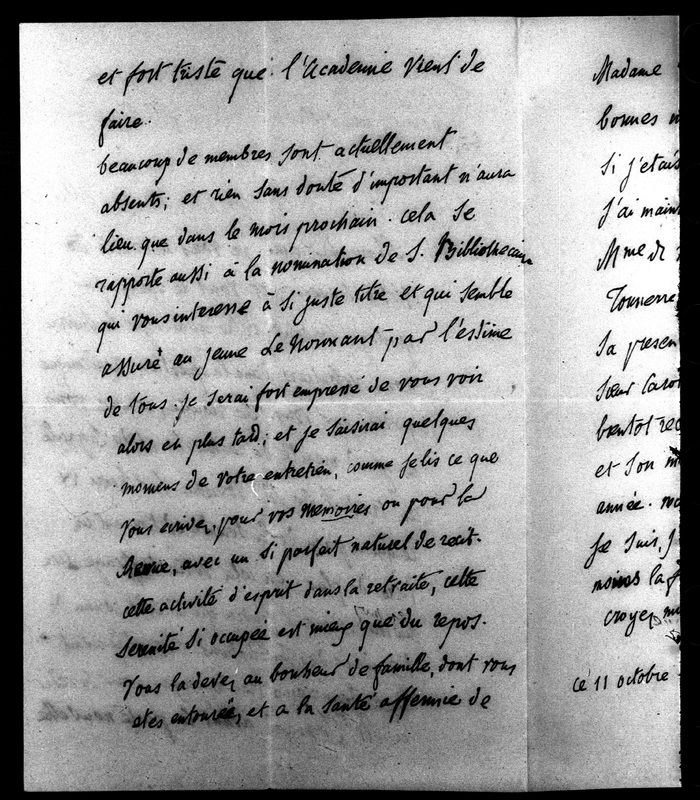 et fort triste que l'Academie vient de
faire.
beaucoup de membres sont actuellement
absents; et rien sans doute d'important n'aura
lieu que dans le mois prochain. cela se
rapporte aussi à la nomination de S. Bibliothecaire
qui vous interesse à si juste titre et qui semble
assuré au jeune Le Normant par l'estime
de tous. je serai fort empressé de vous voir
alors en plus tard; et je saisirai quelques
momens de votre entretien, comme je lis ce que
vous ecrivez, pour vos memoires ou pour la
Revue, avec un si parfait naturel de recit.
cette activité d'esprit dans la retraite, cette
serenité si occupée est mieux que du repos.
Vous la devez au bonheur de famille, dont vous
etes entourée, et a la santé affermie de
Madame
bonnes
si j'etais
j'ai main
Mme de
Tonnerre
Sa presen
Sœur Caro
bientot rec
et Son
année.
je suis, j
moins la
croyez
ce 11 octobre